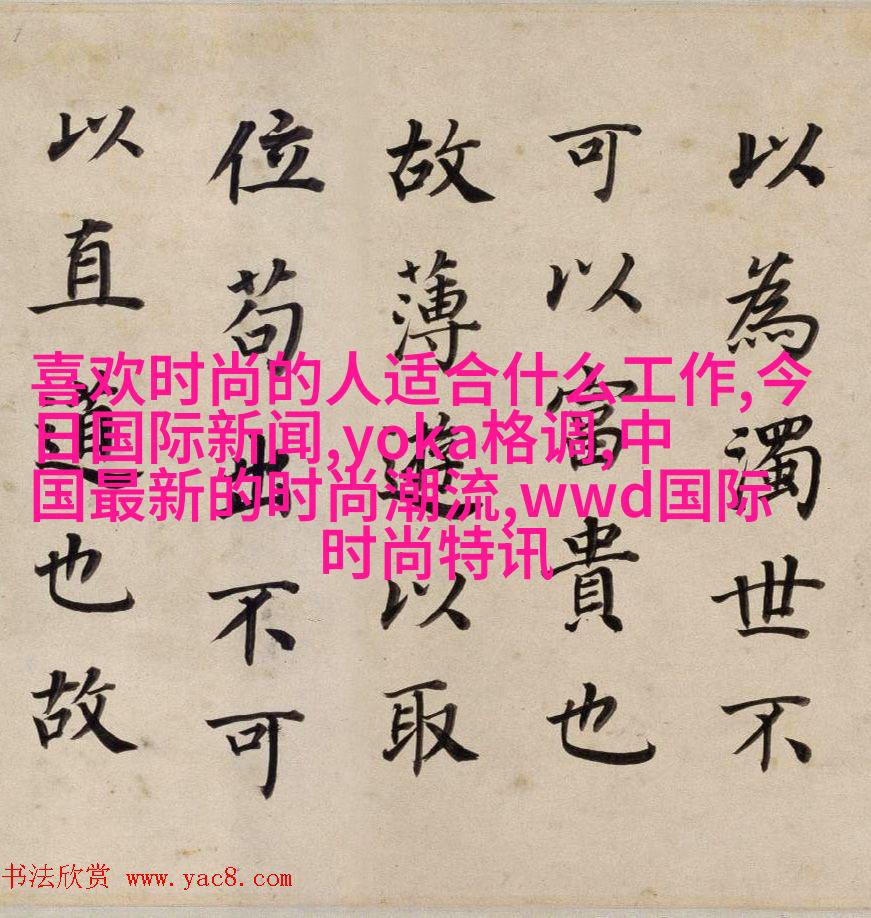 以為濁世不
可以富貴也
故薄遊以取
位苟出不可
以直道也故
喜欢时尚的人适合什么工作,今
日国际新闻,yoka格调,中
国最新的时尚潮流,wwd国际
时尚特讯
书法欣赏 www.yac8.com